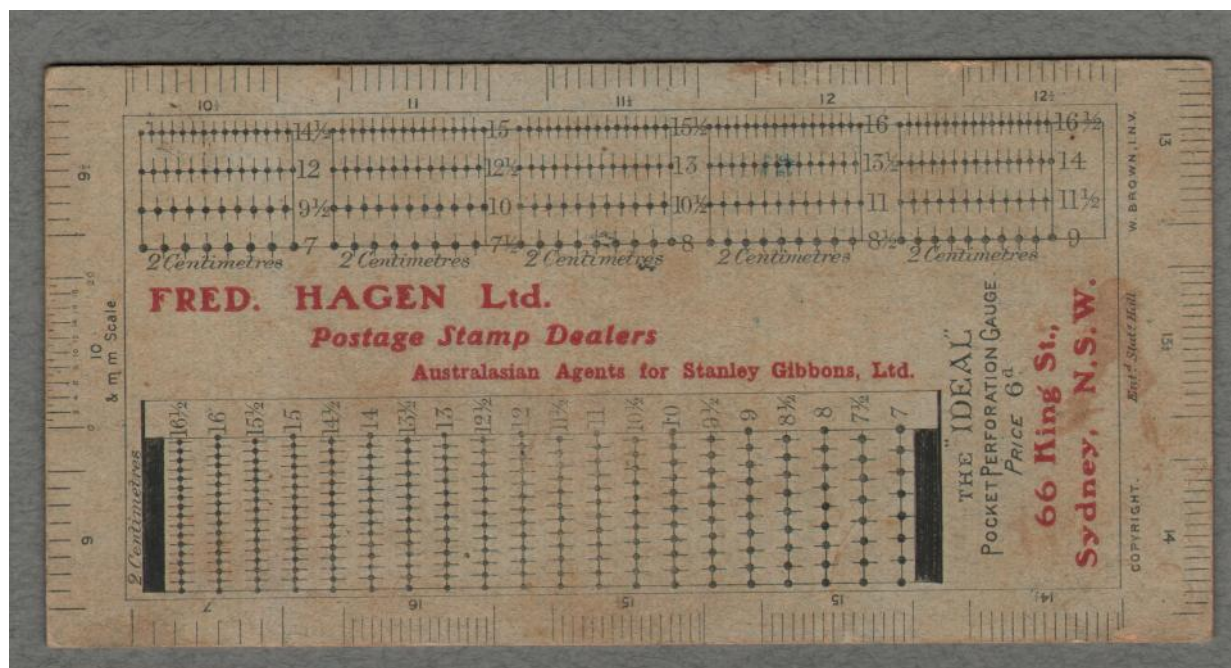 10½ 11 11½ 12 12½
14½ 15 15½ 16 16½
12 12½ 13 13½ 14
9½ 10 10½ 11 11½
7 7½ 8 8½ 9
2 Centimetres 2 Centimetres 2 Centimetres 2 Centimetres 2 Centimetres
FRED. HAGEN Ltd.
Postage Stamp Dealers
Australasian Agents for Stanley Gibbons, Ltd.
16½ 16 15½ 15 14½ 14 13½ 13 12½ 12 11½ 11 10½ 10 9½ 9 8½ 8 7½ 7
2 Centimetres
9½
10
& m m Scale
9
THE "IDEAL"
POCKET PERFORATION GAUGE
PRICE 6d
66 King St.,
Sydney, N.S.W.
COPYRIGHT. Entd. Stats. Hall W. BROWN, INV.
13
13½
14
7 16 15½ 15 14½